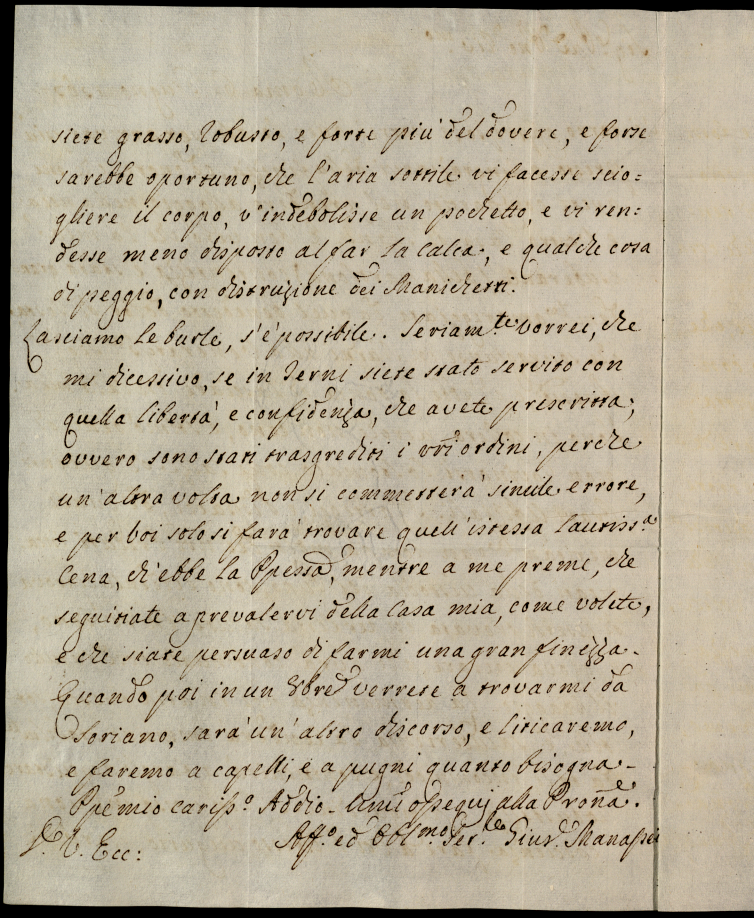 siete grasso, robusto, e forte più del dovere, e forse
sarebbe oportuno, che l'aria sottile vi facesse scio=
gliere il corpo, v'indebolisse un pochetto, e vi ren=
desse meno disposto al far la calca, e qualche cosa
di peggio, con distruzione dei Manichetti.
Lasciamo le burle, s'è possibile. Seriam.te vorrei, che
mi dicessivo, se in Terni siete stato servito con
quella libertà, e confidenza, che avete prescritta;
ovvero sono stati trasgrediti i vr̃i ordini, perche
un'altra volta non si commetterà simile errore,
e per voi solo si farà trovare quell'istessa lautiss.a
Cena, ch'ebbe la Ppessa, mentre a me preme, che
seguitiate a prevalervi della Casa mia, come volete,
e che siate persuaso di farmi una gran finezza.
Quando poi in un 8bre verrete a trovarmi da
Soriano, sarà un'altro discorso, e liticaremo,
e faremo a capelli, e a pugni quanto bisogna.
Ppe mio cariss.o Addio. Umi ossequj alla Proña.
D. V. Ecc:
Aff.o ed Obl.mo Ser.le Giur. Manassei